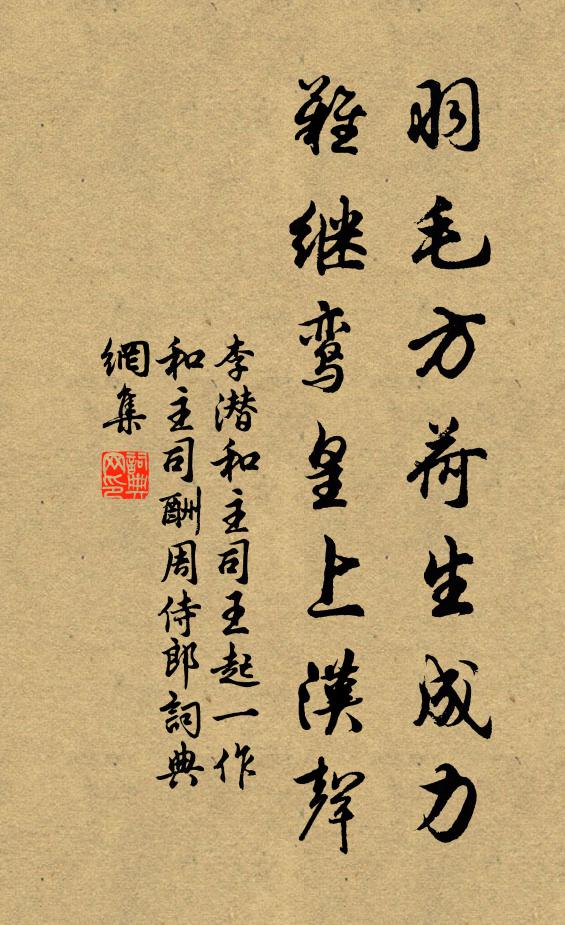 羽毛方荷生成力
难继鸾皇上漢聲
李潜和主司王起一作
和主司酬周侍郎詞典
網集
詞典网印